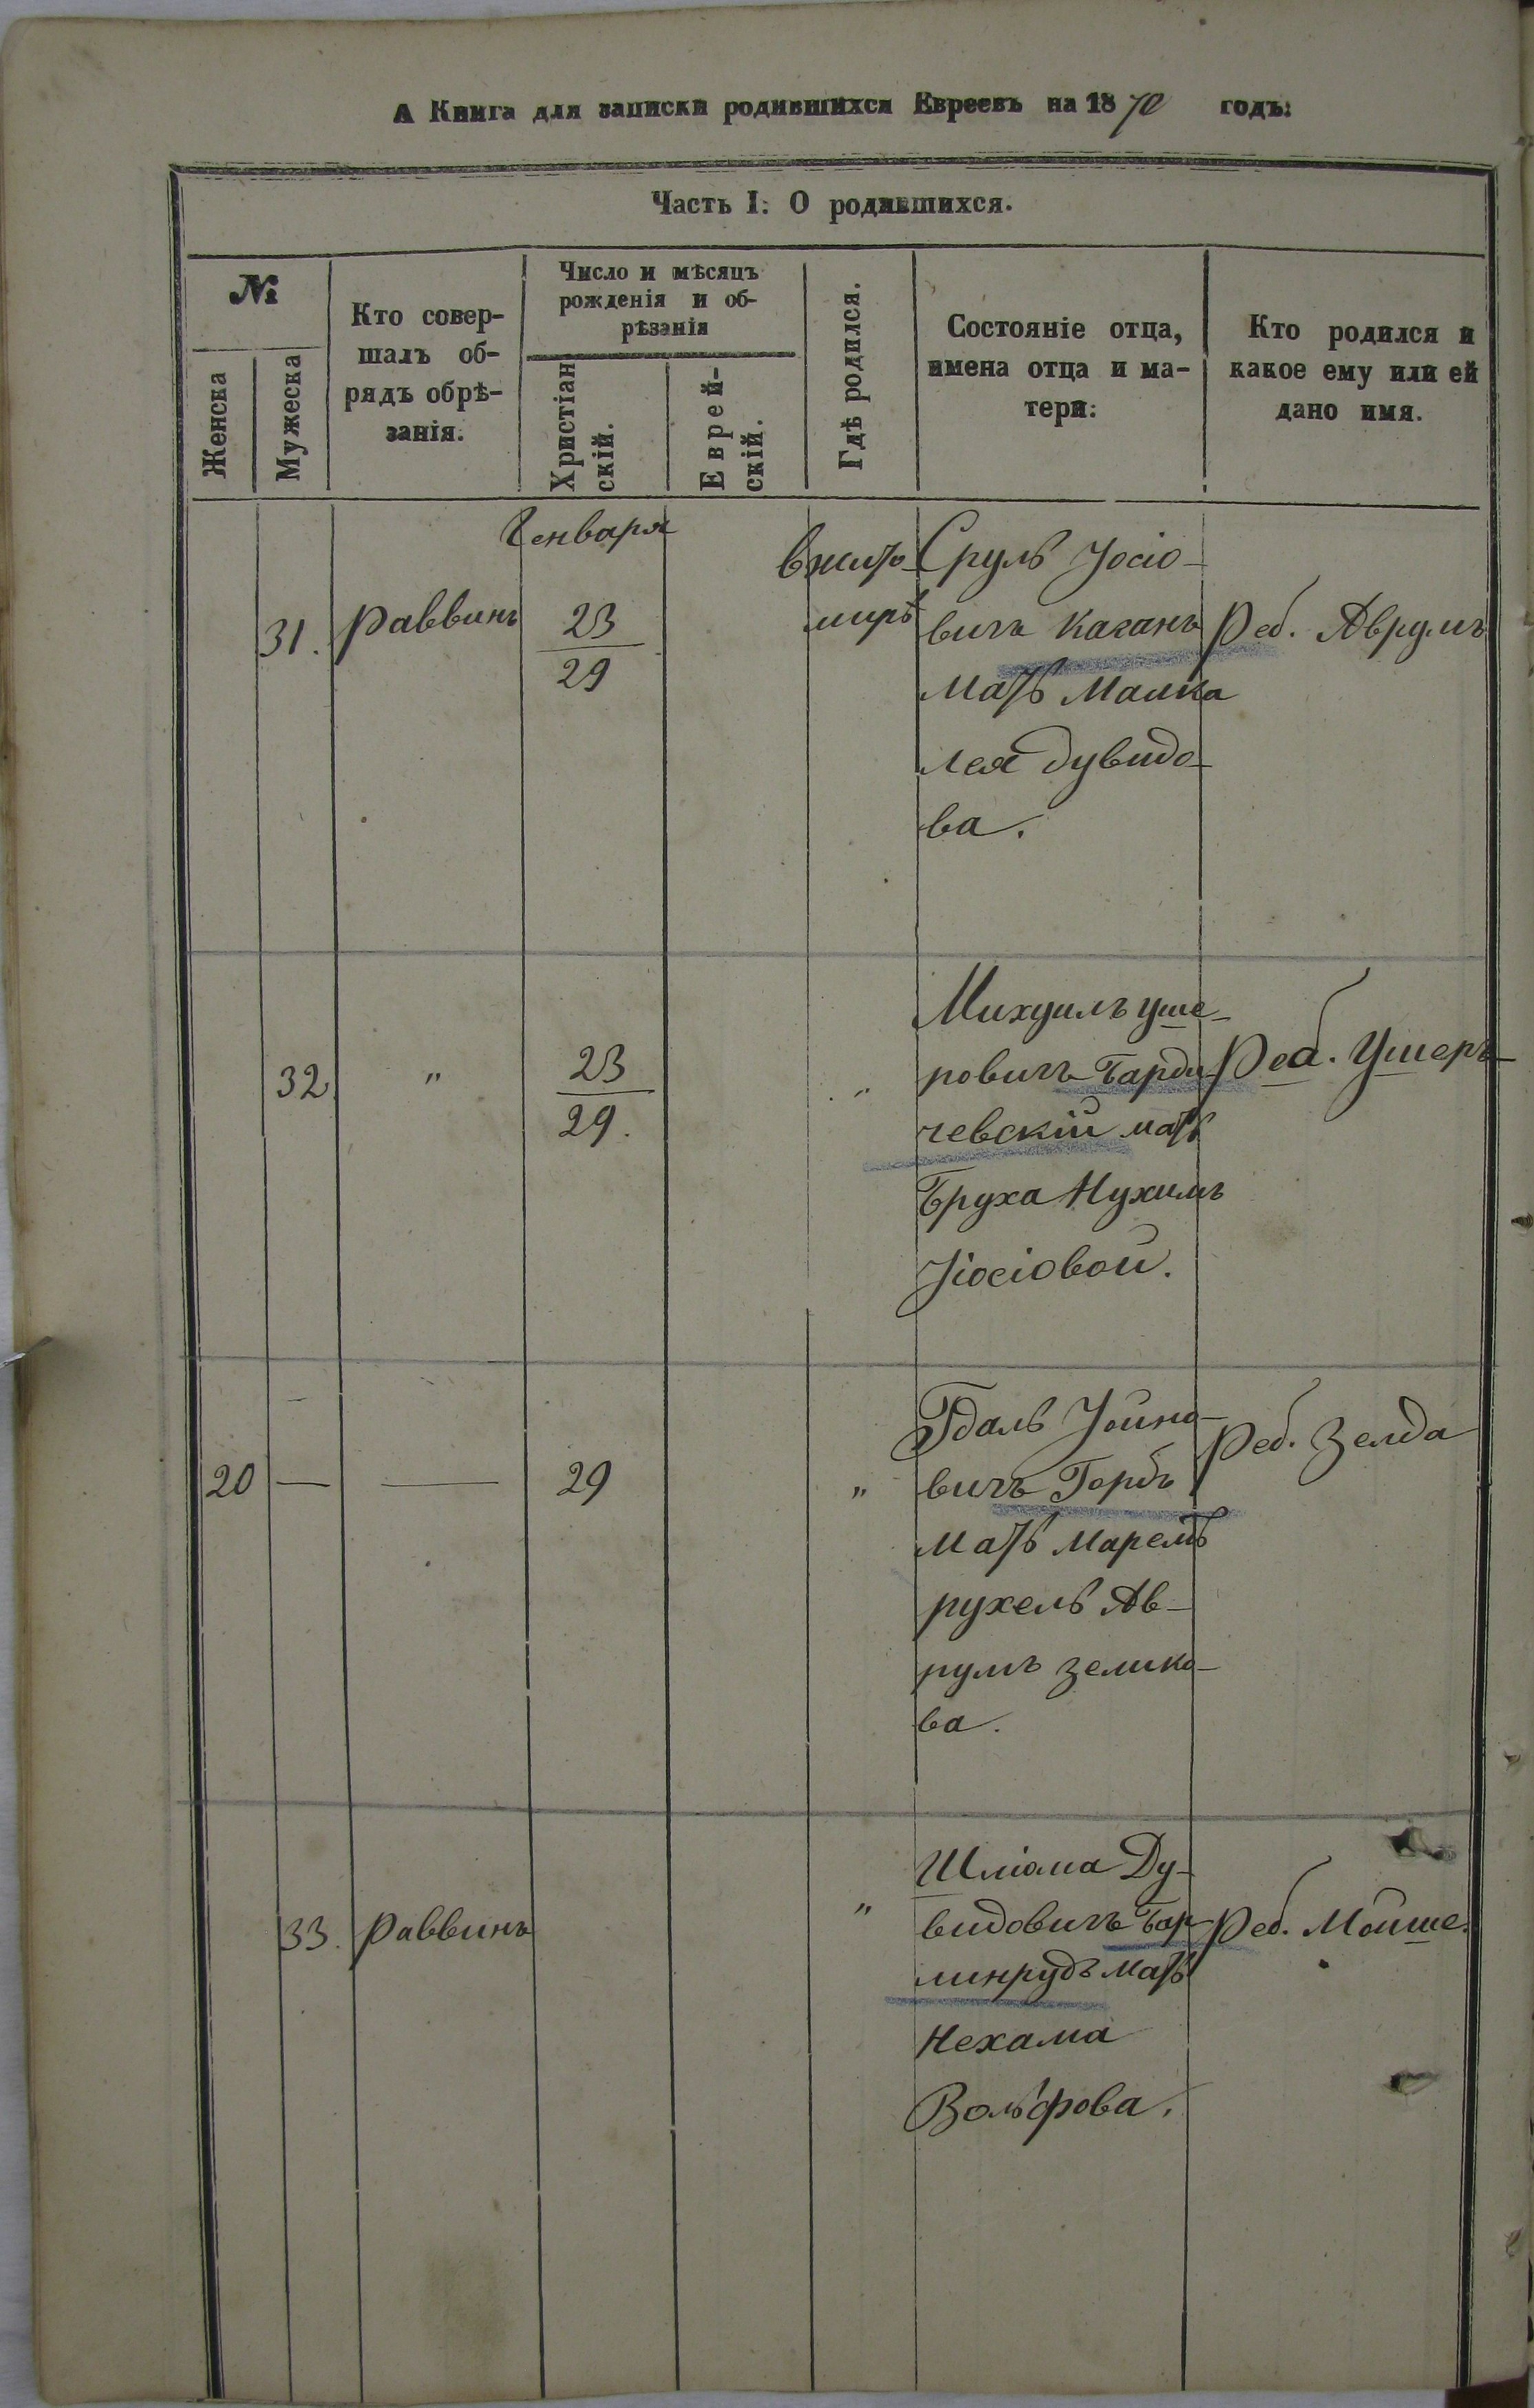 А Книга для записки родившихся Евреевъ на 1870 годъ:
Часть I: О родившихся.
№
Женска
Мужеска
Кто совер-
шалъ об-
рядъ обрѣ-
занія.
Число и мѣсяцъ
рожденія и об-
рѣзанія
Христіан
скій.
Еврей-
скій.
Гдѣ родился.
Состояніе отца,
имена отца и ма-
тери:
Кто родился и
какое ему или ей
дано имя.
Генваря
31.
раввинъ
23
29
вжито-
мирѣ
Сруль Іосіо-
вичъ Каганъ
мать Малка
лея дувидо-
ва.
Реб. Аврумъ
32
"
23
29.
"
Михуилъ Уше-
ровичъ Барди
чевскій мать
Бруха Нухимъ
Іосіовой.
Реб. Ушеръ
20
—
—
29
"
Гдаль Іойно-
вичъ Горбъ
мать Маремъ
рухель Ав-
румъ зелико-
ва.
Реб. Зелда
33.
раввинъ
"
Шліома Ду-
видовичъ Бар
минрудъ мать
Нехама
Вольфова.
Реб. Мойше.